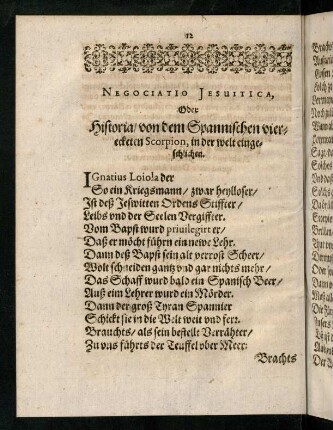 12
NEGOCIATIO JESUITICA,
Oder
Historia/ von dem Spannischen vier-
ecketen Scorpion, in der welt einge-
schlichen.
IGnatius Loiola der
So ein Kriegsmann/ zwar heylloser/
Ist deß Jeswitten Ordens Stiffter/
Leibs vnd der Seelen Vergiffter.
Vom Bapst wurd priuilegirt er/
Daß er möcht führn ein newe Lehr.
Dann deß Bapst sein alt verrost Scheer/
Wolt schneiden gantz vnd gar nichts mehr/
Das Schaff wurd bald ein Spanisch Beer/
Auß eim Lehrer wurd ein Mörder.
Dann der groß Tyran Spannier
Schickt sie in die Welt weit vnd ferr.
Brauchts/ als sein bestellt Verrähter/
Zu vns führts der Teuffel vber Meer:
Brachts